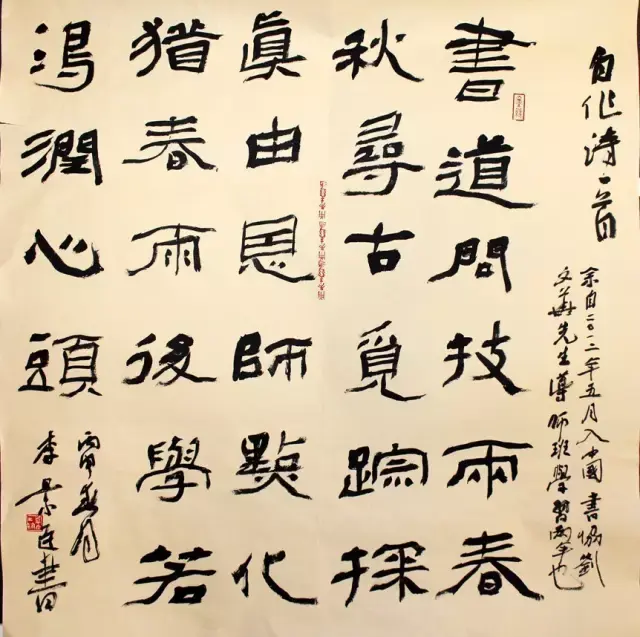 自作诗一首
余自二〇一二年五月入中國書協劉
文華先生導師班學習兩年也
書道問技兩春
秋尋古覓踪探
眞由恩師點化
猶春雨後學若
渴潤心頭
丙申春月
李景書